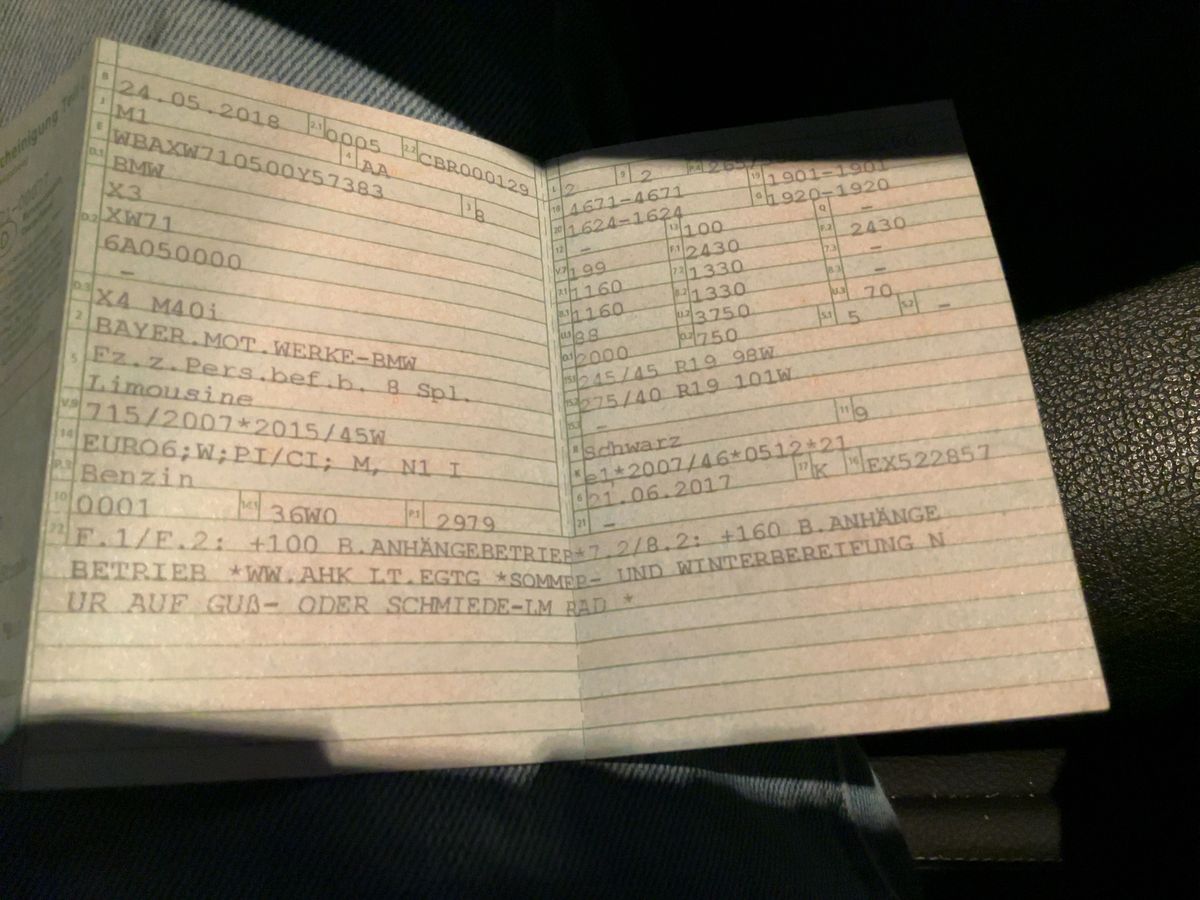 cheinigung Teil
B 24.05.2018 2.1 0005 2.2 CBR000129
J M1 4 AA
E WBAXW710500Y57383 3 8
D.1 BMW
X3
D.2 XW71
6A050000
-
D.3 X4 M40i
2 BAYER.MOT.WERKE-BMW
5 Fz.z.Pers.bef.b. 8 Spl.
Limousine
V.9 715/2007*2015/45W
14 EURO6;W;PI/CI; M, N1 I
P.3 Benzin
10 0001 14.1 36W0 P.1 2979
L 2 9 2 P.4 265/
18 4671-4671 19 1901-1901
20 1624-1624 G 1920-1920
12 - 13 100 Q -
V.7 199 F.1 2430 F.2 2430
7.1 1160 7.2 1330 7.3 -
8.1 1160 8.2 1330 8.3 -
U.1 88 U.2 3750 U.3 70
O.1 2000 O.2 750 S.1 5 S.2 -
15.1 245/45 R19 98W
15.2 275/40 R19 101W
15.3 -
R Schwarz 11 9
K e1*2007/46*0512*21
6 21.06.2017 17 K 16 EX522857
21 -
22 F.1/F.2: +100 B.ANHÄNGEBETRIEB*7.2/8.2: +160 B.ANHÄNGE
BETRIEB *WW.AHK LT.EGTG *SOMMER- UND WINTERBEREIFUNG N
UR AUF GUß- ODER SCHMIEDE-LM RAD *